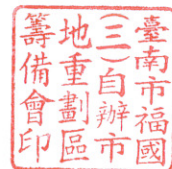 臺南市福國
(三)自辦市
地重劃區
籌備會印